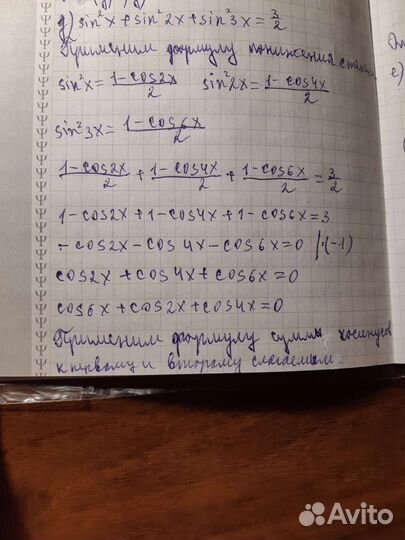 д) sin²x + sin²2x + sin²3x = 3/2
Применим формулу понижения степени
sin²x = (1-cos2x)/2 sin²2x = (1-cos4x)/2
sin²3x = (1-cos6x)/2
(1-cos2x)/2 + (1-cos4x)/2 + (1-cos6x)/2 = 3/2
1-cos2x+1-cos4x+1-cos6x=3
-cos2x-cos4x-cos6x=0 |·(-1)
cos2x+cos4x+cos6x=0
cos6x+cos2x+cos4x=0
Применим формулу суммы косинусов
к первому и второму слагаемым.
е)
Avito